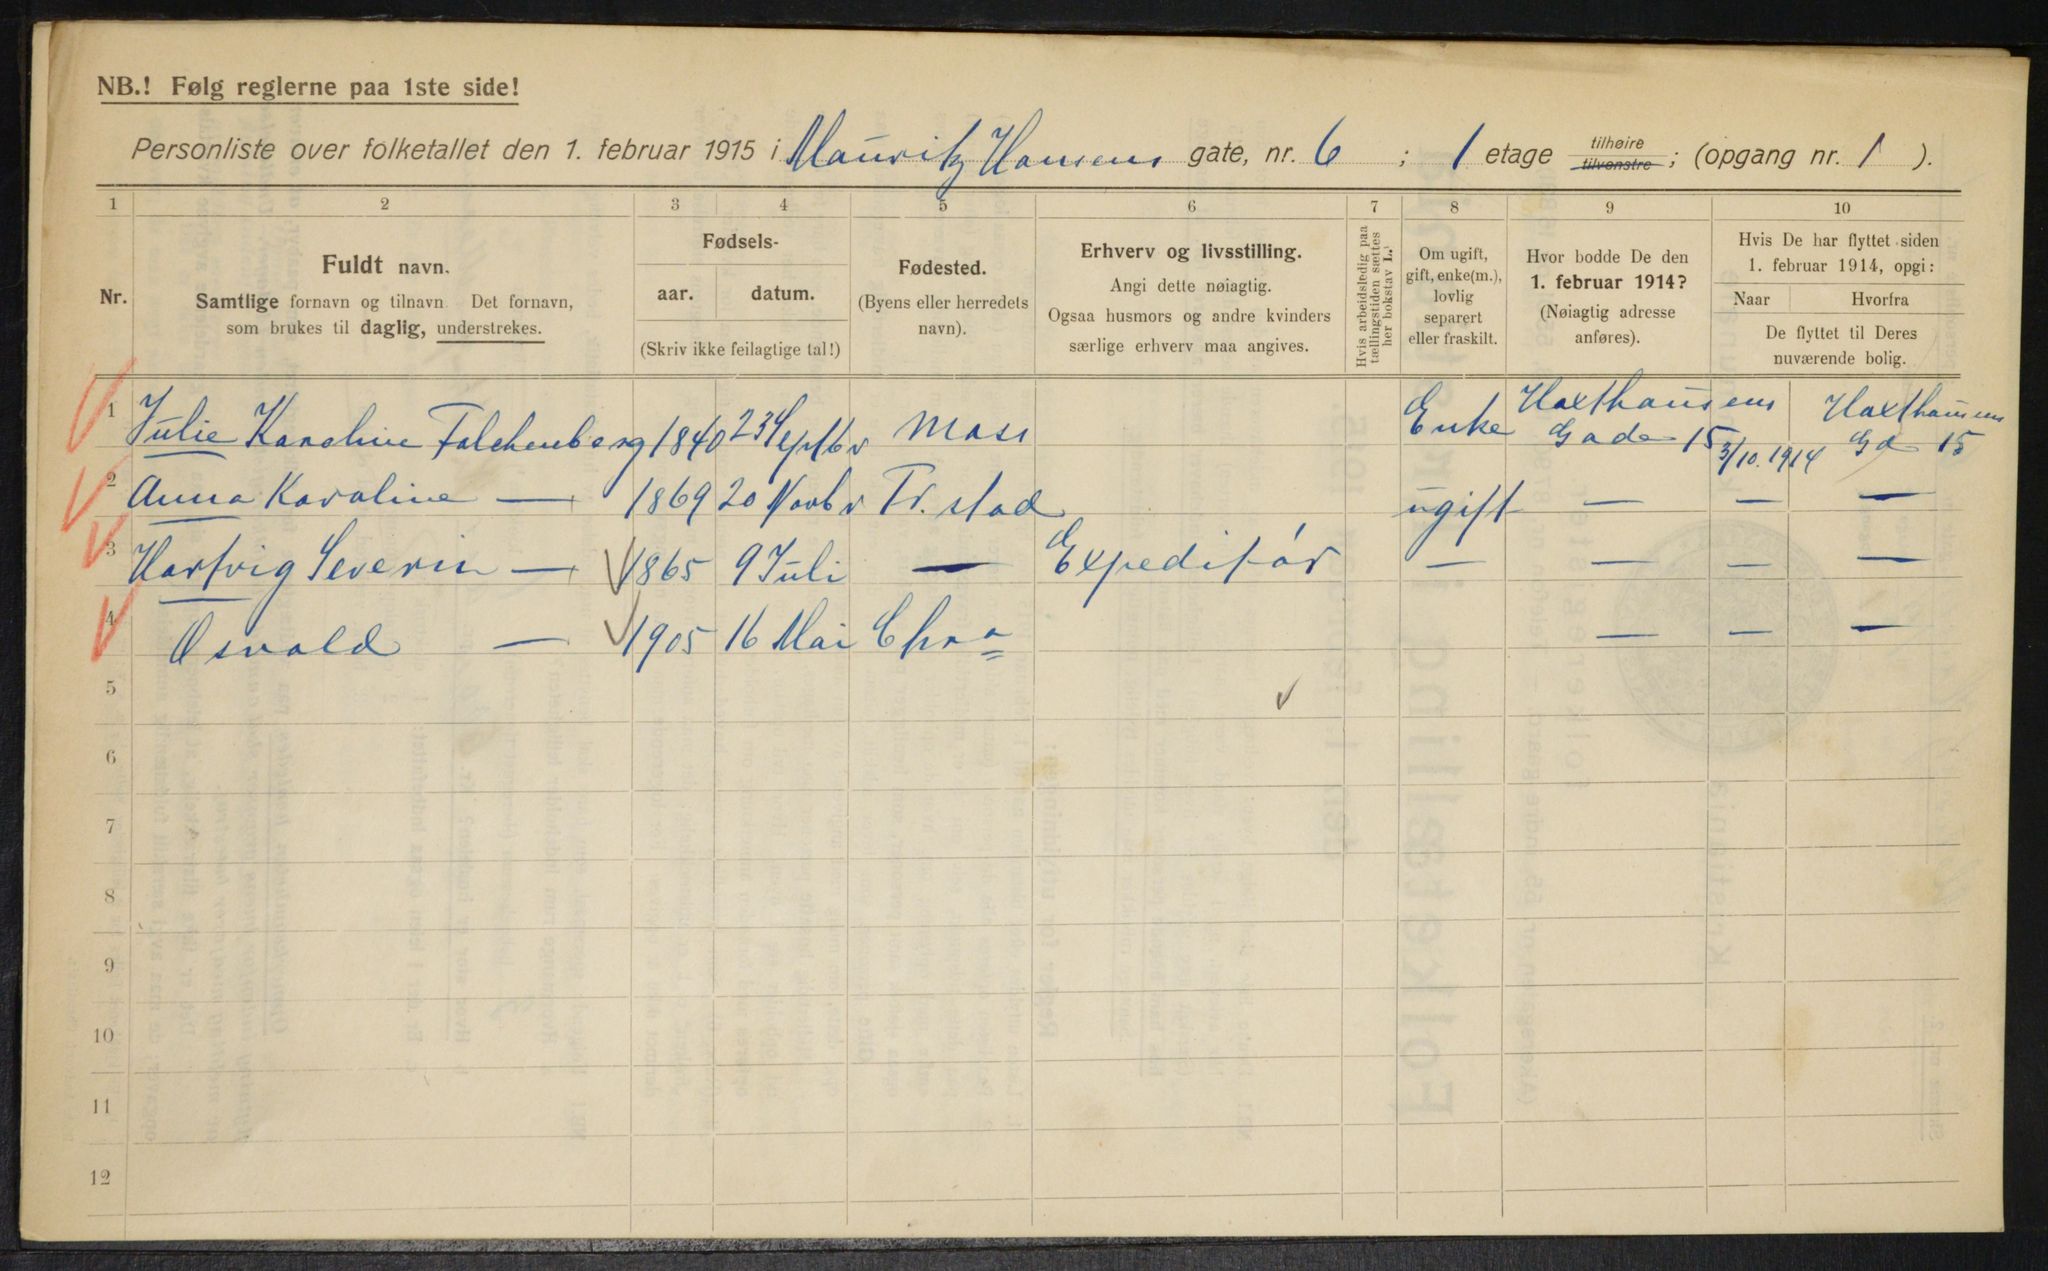 NB.! Følg reglerne paa 1ste side!
Personliste over folketallet den 1. februar 1915 i Mauritz Hansens gate, nr. 6 ; 1 etage tilhøire tilvenstre ; (opgang nr. 1 ).
1 2 3 4 5 6 7 8 9 10
Nr.
Fuldt navn.
Samtlige fornavn og tilnavn Det fornavn,
som brukes til daglig, understrekes.
Fødsels-
aar. datum.
(Skriv ikke feilagtige tal!)
Fødested.
(Byens eller herredets
navn).
Erhverv og livsstilling.
Angi dette nøiagtig.
Ogsaa husmors og andre kvinders
særlige erhverv maa angives.
Hvis arbeidsledig paa
tællingstiden sættes
her bokstav L.
Om ugift,
gift, enke(m.),
lovlig
separert
eller fraskilt.
Hvor bodde De den
1. februar 1914?
(Nøiagtig adresse
anføres).
Hvis De har flyttet siden
1. februar 1914, opgi:
Naar Hvorfra
De flyttet til Deres
nuværende bolig.
1 Julie Karoline Falchenberg 1840 23 Septbr Moss Enke Haxthausens Gade 15 3/10. 1914 Haxthausens Gd 15
2 Anna Karoline — 1869 20 Novbr Fr. stad ugift — — —
3 Hartvig Severin — 1865 9 Juli — Expeditør — — — —
4 Osvald — 1905 16 Mai Chra — — —
5
6
7
8
9
10
11
12